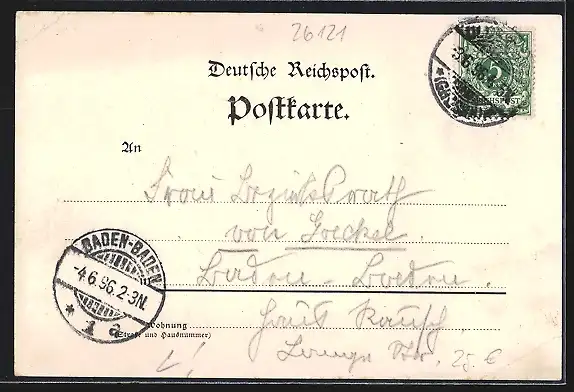 26121
Deutsche Reichspost.
Postkarte.
An
Frau Bezirksrath
von Goeckel.
Baden-Baden.
Wohnung
(Straße und Hausnummer)
Haus Rausch
Lange Str.
BADEN-BADEN
4.6.96.2-3N.
* 1 a
REICHSPOST